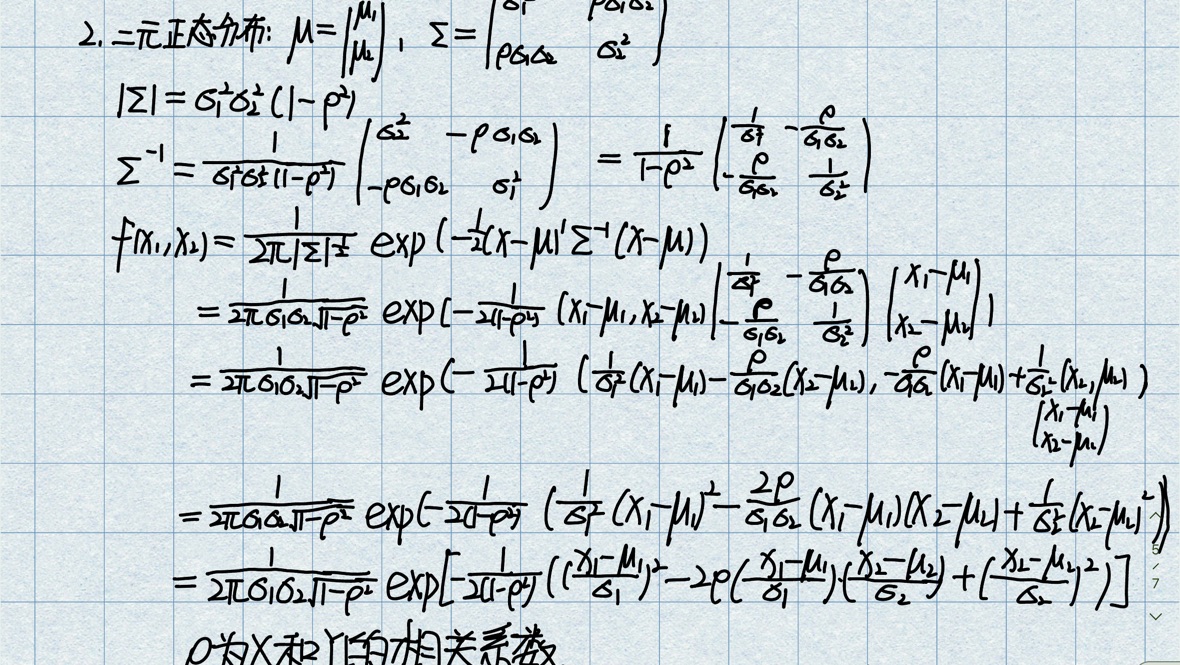 2. 二元正态分布: μ = (μ₁ μ₂), Σ = (σ₁² ρσ₁σ₂ ρσ₁σ₂ σ₂²)
|Σ| = σ₁²σ₂²(1-ρ²)
Σ⁻¹ = 1/(σ₁²σ₂²(1-ρ²)) (σ₂² -ρσ₁σ₂ -ρσ₁σ₂ σ₁²) = 1/(1-ρ²) (1/σ₁² -ρ/(σ₁σ₂) -ρ/(σ₁σ₂) 1/σ₂²)
f(x₁,x₂) = 1/(2π|Σ|^(1/2)) exp(-1/2(x-μ)'Σ⁻¹(x-μ))
= 1/(2πσ₁σ₂√(1-ρ²)) exp(-1/(2(1-ρ²)) (x₁-μ₁, x₂-μ₂) (1/σ₁² -ρ/(σ₁σ₂) -ρ/(σ₁σ₂) 1/σ₂²) (x₁-μ₁ x₂-μ₂))
= 1/(2πσ₁σ₂√(1-ρ²)) exp(-1/(2(1-ρ²)) (1/σ₁²(x₁-μ₁)-ρ/(σ₁σ₂)(x₂-μ₂), -ρ/(σ₁σ₂)(x₁-μ₁)+1/σ₂²(x₂,μ₂))
(x₁-μ₁ x₂-μ₂)
= 1/(2πσ₁σ₂√(1-ρ²)) exp(-1/(2(1-ρ²)) (1/σ₁²(x₁-μ₁)²-2ρ/(σ₁σ₂)(x₁-μ₁)(x₂-μ₂)+1/σ₂²(x₂-μ₂)²))
= 1/(2πσ₁σ₂√(1-ρ²)) exp[-1/(2(1-ρ²)) (((x₁-μ₁)/σ₁)²-2ρ((x₁-μ₁)/σ₁)((x₂-μ₂)/σ₂)+((x₂-μ₂)/σ₂)²)]
ρ为X和Y的相关系数
5
/
7